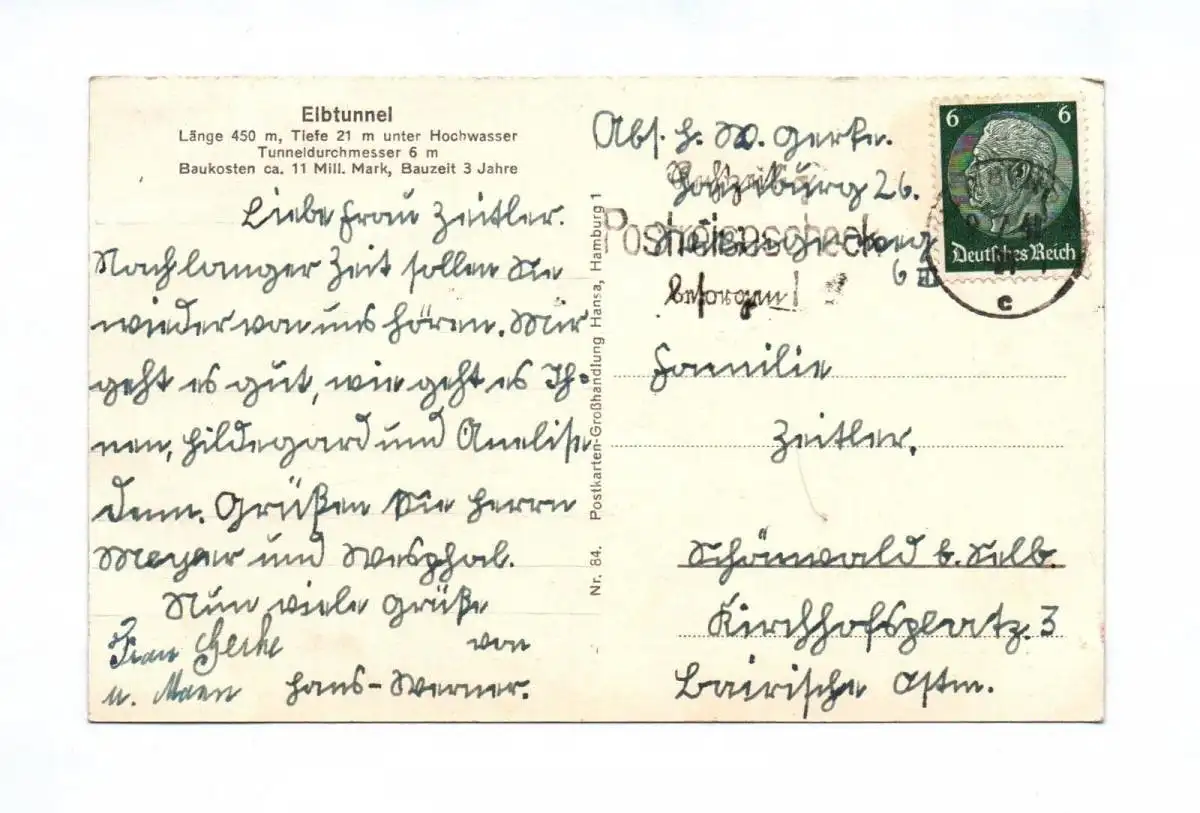 Elbtunnel
Länge 450 m, Tiefe 21 m unter Hochwasser
Tunneldurchmesser 6 m
Baukosten ca. 11 Mill. Mark, Bauzeit 3 Jahre
Liebe Frau Zeitler.
Nach langer Zeit sollen Sie
wieder von uns hören. Mir
geht es gut, wie geht es Ih-
nen, Hildegard und Aneliese
denn. Grüßen Sie Herrn
Meyer und Wesphal.
Nun viele Grüße
von
Hans-Werner.
Frau Gerke
u. Mann
Nr. 84. Postkarten-Großhandlung Hansa, Hamburg 1
Abs. H. W. Gerke.
Hamburg 26.
6 II
Postreisescheck
besorgen!
6 6
Deutsches Reich
c
Familie
Zeitler.
Schönwald b. Selb.
Kirchhofsplatz. 3
Bairische Ostm.